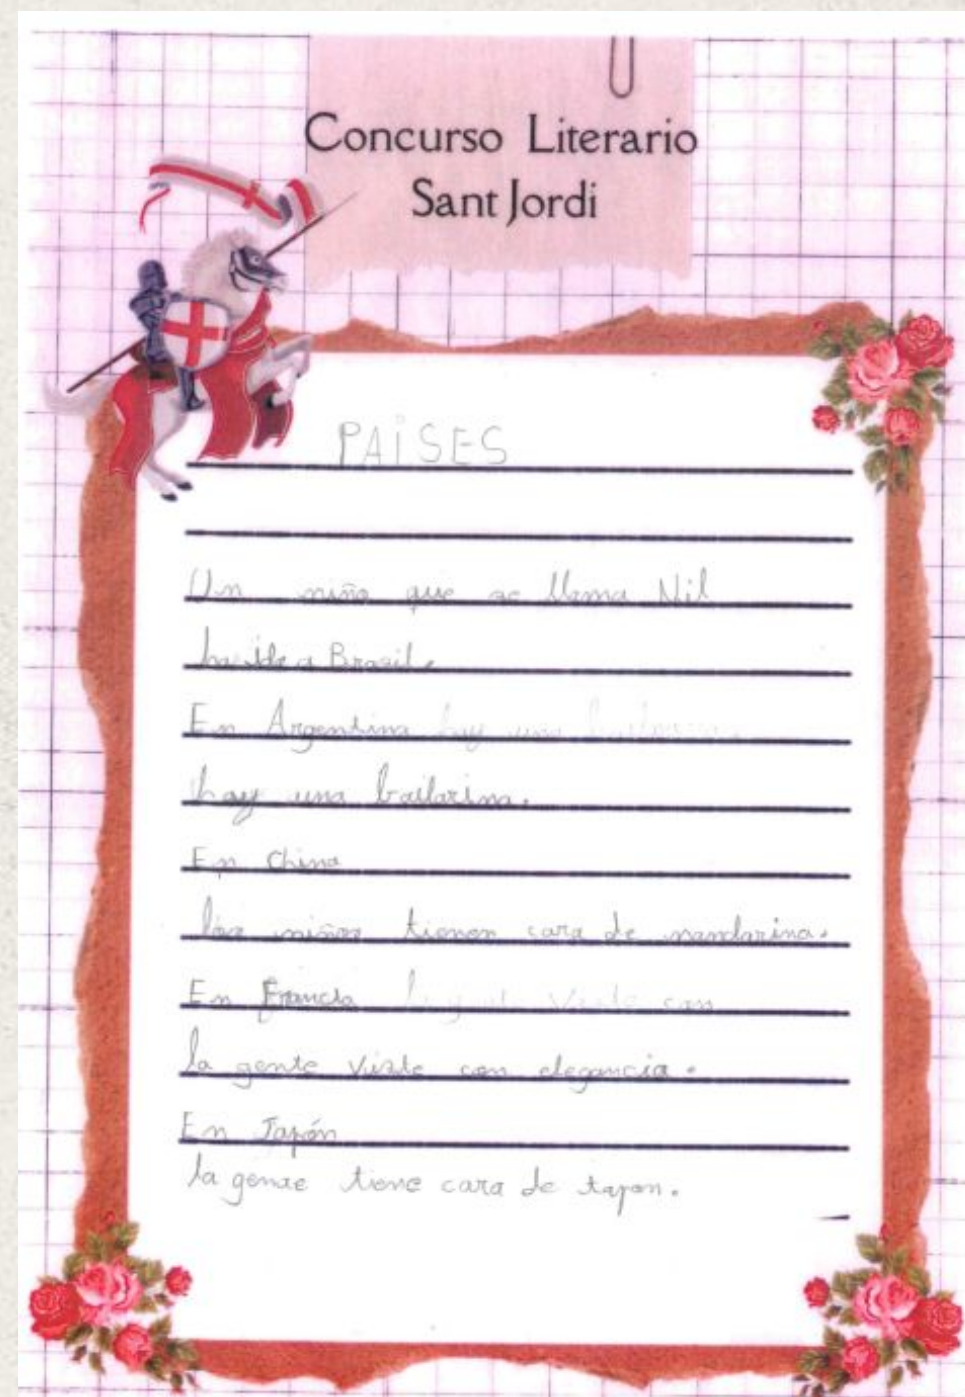 Concurso Literario
Sant Jordi
PAÍSES
Un niño que se llama Nil
ha ido a Brasil.
En Argentina hay una bailarina.
hay una bailarina.
En China
los niños tienen cara de mandarina.
En Francia la gente viste con
la gente viste con elegancia.
En Japón
la gente tiene cara de tapon.